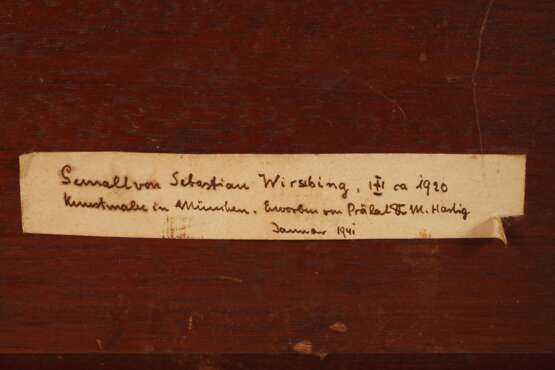 Gemalt von Sebastian Wirsching, ca 1920
Kunstmaler in München. Erworben von Prälat Dr. M. Hartig
Januar 1941